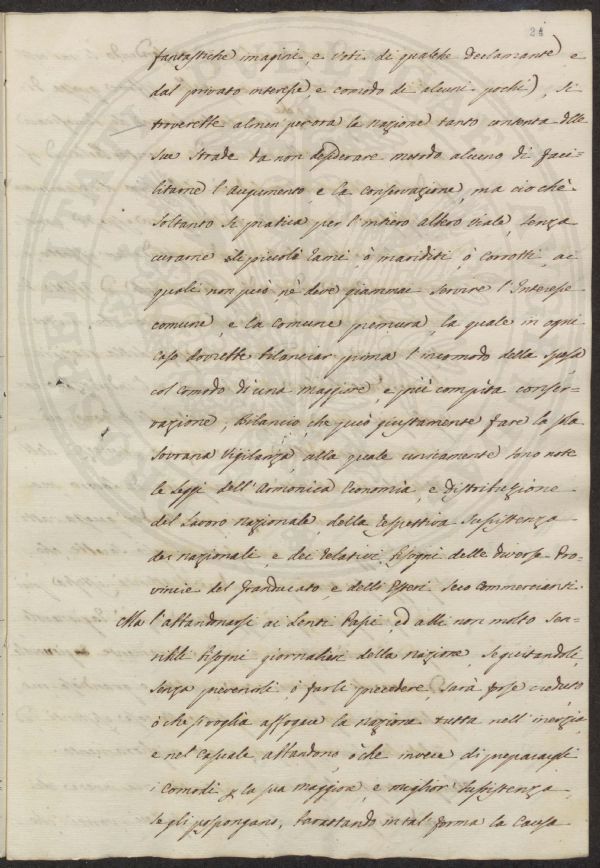 24
fantastiche imagini, e voti di qualche declamante) e
dal privato interesse, e comodo di alcuni pochi), si
troverebbe almen per ora la nazione tanto contenta delle
sue strade da non desiderare metodo alcuno di faci-
litarne l'aupumento, e la conservazione, ma ciochè
soltanto si pratica per l'intiero albero viale, senza
curarne li piccoli rami, ò mariditi, ò corrotti, ai
quali non può, nè deve giammai servire l'Interesse
comune, e la comune premura, la quale in ogni
caso dovrebbe bilanciar prima l'incomodo della spesa
col comodo di una maggiore, e più compita conser-
vazione, Bilancio, che può giustamente fare la sola
Sovrana Vigilanza, alla quale unicamente sono note
le Leggi dell'Armonica Economia, e distribuzione
del Lavoro nazionale, della respettiva sussistenza
dei nazionali, e dei relativi bisogni delle diverse Pro-
vincie del Granducato, e delli Esteri seco commercianti.
Ma l'abbandonarsi ai lenti passi, ed alli non molto sen-
sibili bisogni giornalieri della nazione, seguitandoli,
senza prevenirli, ò farli precedere, sarà forse creduto
ò che si voglia affogare la nazione tutta nell'inerzia,
e nel casuale abbandono, ò che invece di prepararsegli
i comodi p la sua maggiore, e miglior sussistenza,
se gli pospongano, barattando in tal forma la causa